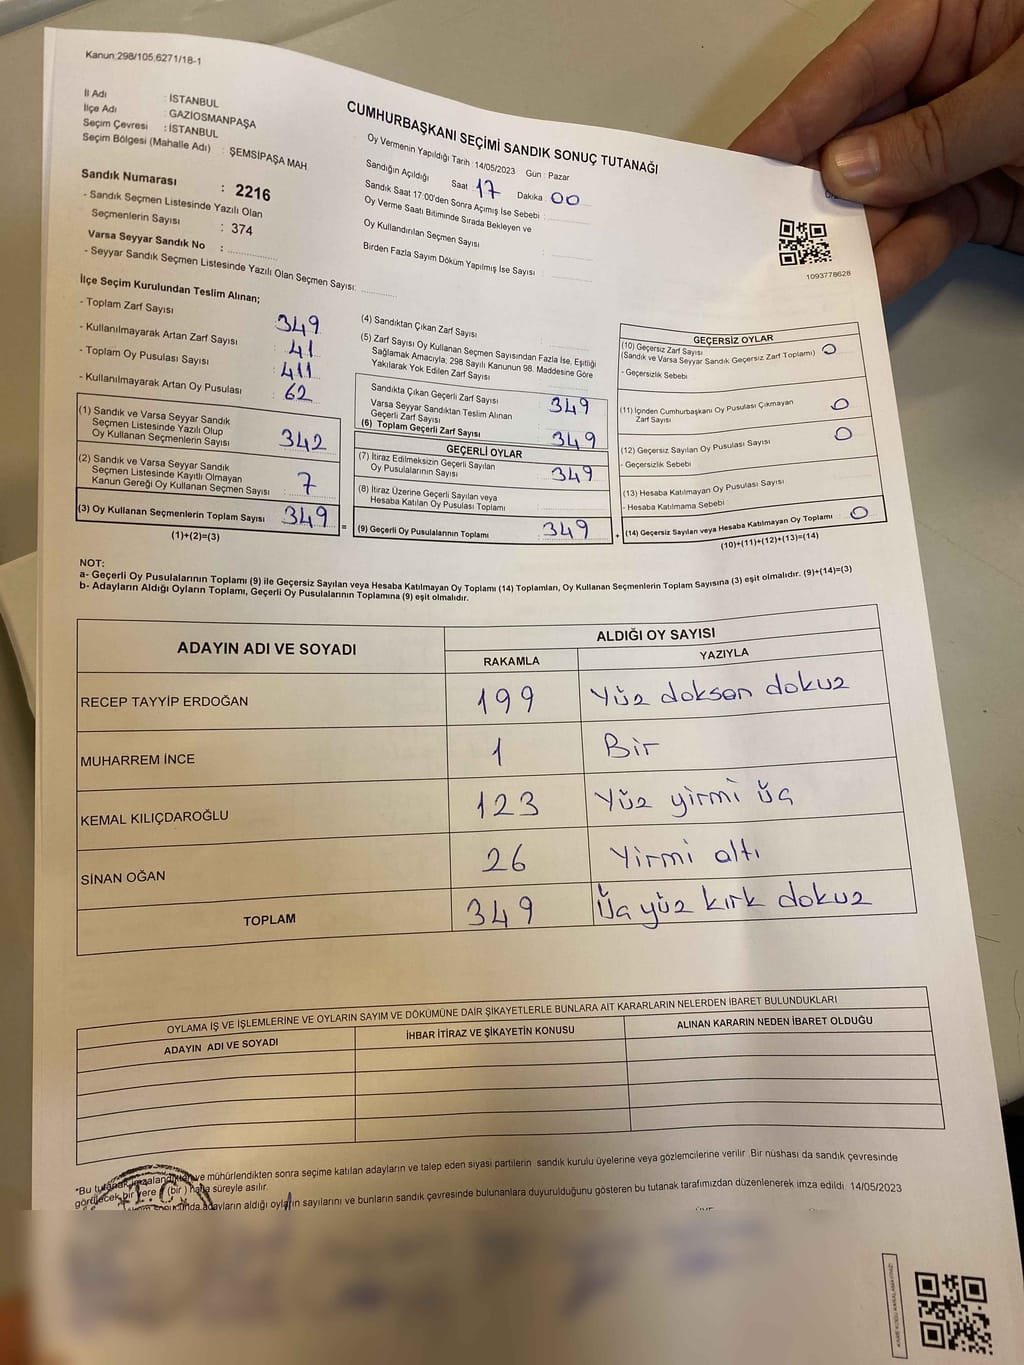 Kanun:298/105,6271/18-1
İl Adı : İSTANBUL
İlçe Adı : GAZİOSMANPAŞA
Seçim Çevresi : İSTANBUL
Seçim Bölgesi (Mahalle Adı) : ŞEMSİPAŞA MAH
Sandık Numarası : 2216
- Sandık Seçmen Listesinde Yazılı Olan
Seçmenlerin Sayısı : 374
Varsa Seyyar Sandık No :
- Seyyar Sandık Seçmen Listesinde Yazılı Olan Seçmen Sayısı:
CUMHURBAŞKANI SEÇİMİ SANDIK SONUÇ TUTANAĞI
Oy Vermenin Yapıldığı Tarih : 14/05/2023 Gün : Pazar
Sandığın Açıldığı Saat : 17 Dakika 00
Sandık Saat 17:00'den Sonra Açımış İse Sebebi :
Oy Verme Saati Bitiminde Sırada Bekleyen ve
Oy Kullandırılan Seçmen Sayısı
Birden Fazla Sayım Döküm Yapılmış İse Sayısı :
1093778628
İlçe Seçim Kurulundan Teslim Alınan;
- Toplam Zarf Sayısı : 349
- Kullanılmayarak Artan Zarf Sayısı : 41
- Toplam Oy Pusulası Sayısı : 411
- Kullanılmayarak Artan Oy Pusulası : 62
(1) Sandık ve Varsa Seyyar Sandık
Seçmen Listesinde Yazılı Olup
Oy Kullanan Seçmenlerin Sayısı : 342
(2) Sandık ve Varsa Seyyar Sandık
Seçmen Listesinde Kayıtlı Olmayan
Kanun Gereği Oy Kullanan Seçmen Sayısı : 7
(3) Oy Kullanan Seçmenlerin Toplam Sayısı 349
(1)+(2)=(3)
(4) Sandıktan Çıkan Zarf Sayısı
(5) Zarf Sayısı Oy Kullanan Seçmen Sayısından Fazla İse, Eşitliği
Sağlamak Amacıyla; 298 Sayılı Kanunun 98. Maddesine Göre
Yakılarak Yok Edilen Zarf Sayısı
Sandıkta Çıkan Geçerli Zarf Sayısı 349
Varsa Seyyar Sandıktan Teslim Alınan
Geçerli Zarf Sayısı
(6) Toplam Geçerli Zarf Sayısı 349
GEÇERLİ OYLAR
(7) İtiraz Edilmeksizin Geçerli Sayılan
Oy Pusulalarının Sayısı 349
(8) İtiraz Üzerine Geçerli Sayılan veya
Hesaba Katılan Oy Pusulası Toplamı
= (9) Geçerli Oy Pusulalarının Toplamı 349
GEÇERSİZ OYLAR
(10) Geçersiz Zarf Sayısı 0
(Sandık ve Varsa Seyyar Sandık Geçersiz Zarf Toplamı)
- Geçersizlik Sebebi
(11) İçinden Cumhurbaşkanı Oy Pusulası Çıkmayan
Zarf Sayısı 0
(12) Geçersiz Sayılan Oy Pusulası Sayısı 0
- Geçersizlik Sebebi
(13) Hesaba Katılmayan Oy Pusulası Sayısı
- Hesaba Katılmama Sebebi
+ (14) Geçersiz Sayılan veya Hesaba Katılmayan Oy Toplamı 0
(10)+(11)+(12)+(13)=(14)
NOT:
a- Geçerli Oy Pusulalarının Toplamı (9) ile Geçersiz Sayılan veya Hesaba Katılmayan Oy Toplamı (14) Toplamları, Oy Kullanan Seçmenlerin Toplam Sayısına (3) eşit olmalıdır. (9)+(14)=(3)
b- Adayların Aldığı Oyların Toplamı, Geçerli Oy Pusulalarının Toplamına (9) eşit olmalıdır.
ADAYIN ADI VE SOYADI ALDIĞI OY SAYISI
RAKAMLA YAZIYLA
RECEP TAYYİP ERDOĞAN 199 Yüz doksan dokuz
MUHARREM İNCE 1 Bir
KEMAL KILIÇDAROĞLU 123 Yüz yirmi üç
SİNAN OĞAN 26 Yirmi altı
TOPLAM 349 Üç yüz kırk dokuz
OYLAMA İŞ VE İŞLEMLERİNE VE OYLARIN SAYIM VE DÖKÜMÜNE DAİR ŞİKAYETLERLE BUNLARA AİT KARARLARIN NELERDEN İBARET BULUNDUKLARI
ADAYIN ADI VE SOYADI İHBAR İTİRAZ VE ŞİKAYETİN KONUSU ALINAN KARARIN NEDEN İBARET OLDUĞU
*Bu tutanak imzalandıktan ve mühürlendikten sonra seçime katılan adayların ve talep eden siyasi partilerin sandık kurulu üyelerine veya gözlemcilerine verilir. Bir nüshası da sandık çevresinde
görülecek bir yere (bir) hafta süreyle asılır.
adayların aldığı oyların sayılarını ve bunların sandık çevresinde bulunanlara duyurulduğunu gösteren bu tutanak tarafımızdan düzenlenerek imza edildi. 14/05/2023
T.C.